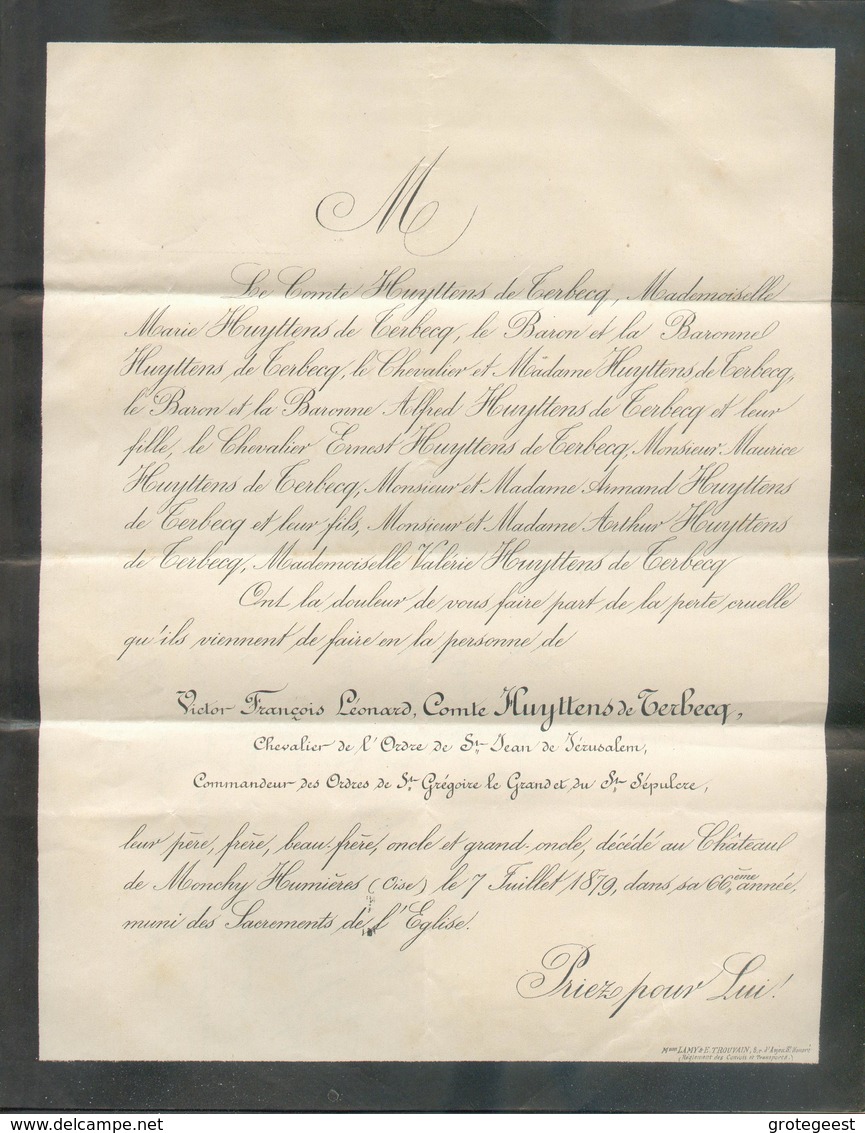 M
Le Comte Huyttens de Terbecq, Mademoiselle
Marie Huyttens de Terbecq, le Baron et la Baronne
Huyttens de Terbecq, le Chevalier et Madame Huyttens de Terbecq,
le Baron et la Baronne Alfred Huyttens de Terbecq et leur
fille, le Chevalier Ernest Huyttens de Terbecq, Monsieur Maurice
Huyttens de Terbecq, Monsieur et Madame Armand Huyttens
de Terbecq et leur fils, Monsieur et Madame Arthur Huyttens
de Terbecq, Mademoiselle Valérie Huyttens de Terbecq
Ont la douleur de vous faire part de la perte cruelle
qu'ils viennent de faire en la personne de
Victor François Léonard, Comte Huyttens de Terbecq,
Chevalier de l'Ordre de St. Jean de Jérusalem,
Commandeur des Ordres de St. Grégoire le Grand et du St. Sépulcre,
leur père, frère, beau-frère, oncle et grand-oncle, décédé au Château
de Monchy Humières (Oise) le 7 Juillet 1879, dans sa 66ème année,
muni des Sacrements de l'Eglise.
Priez pour Lui!
Mson LAMY & E. TROUVAIN, 8, r. d'Anjou St Honoré
(Règlement des Convois et Transports.)
grotegeest